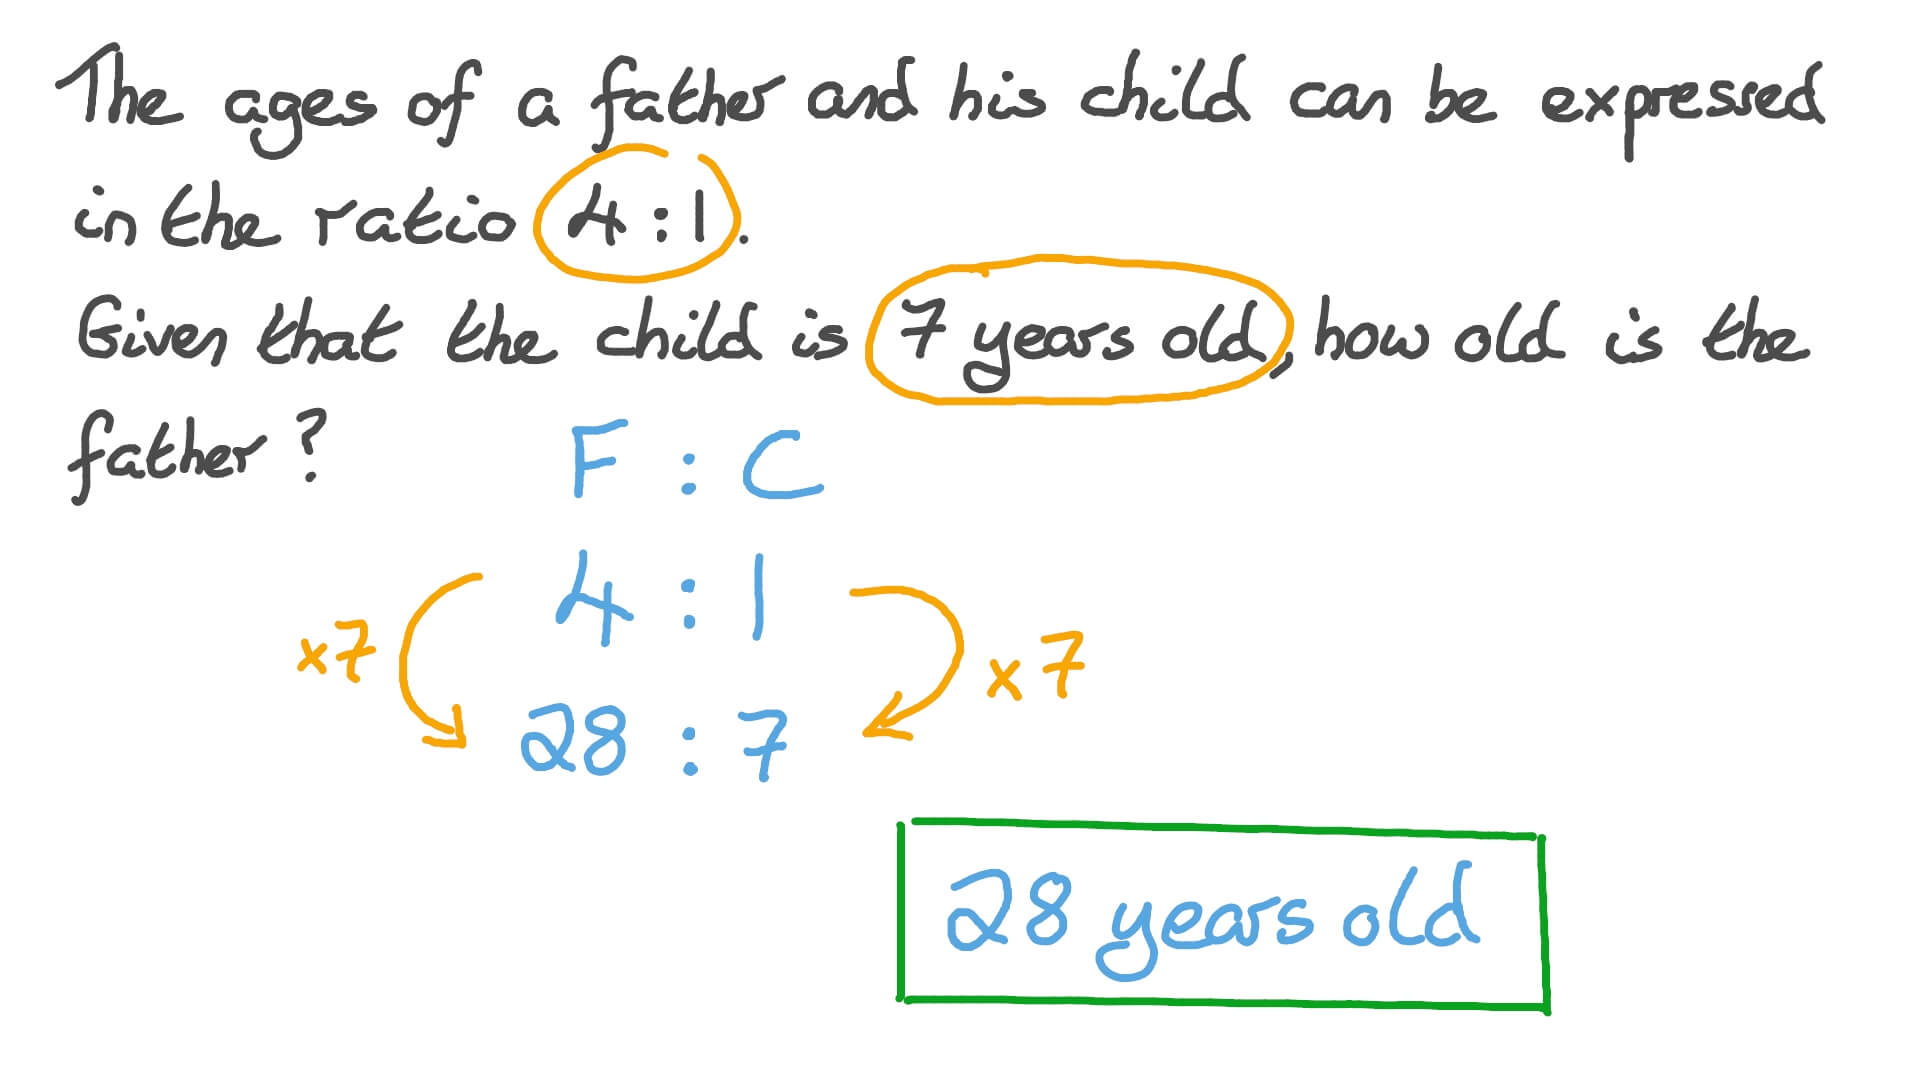 The ages of a father and his child can be expressed
in the ratio 4:1.
Given that the child is 7 years old, how old is the
father?
F : C
4 : 1
x7 x7
28 : 7
28 years old